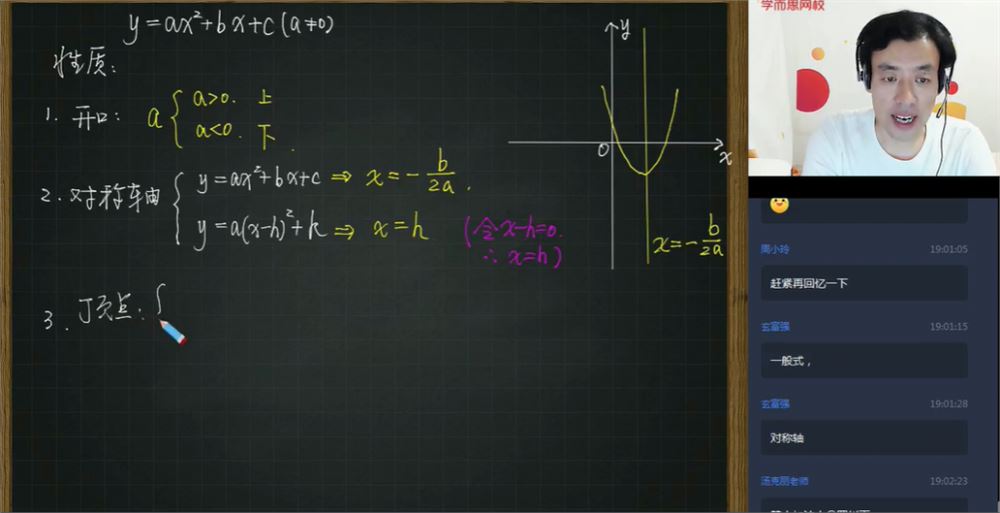 y=ax²+bx+c(a≠0)
性质:
1. 开口: a { a>0. 上
a<0. 下.
2. 对称轴 { y=ax²+bx+c ⇒ x=-b/2a.
y=a(x-h)²+k ⇒ x=h
(令x-h=0.
∴ x=h)
3. 顶点: {
y
0
x
x=-b/2a
学而思网校
周小玲 19:01:05
赶紧再回忆一下
玄富强 19:01:15
一般式，
玄富强 19:01:28
对称轴
汤克丽老师 19:02:23